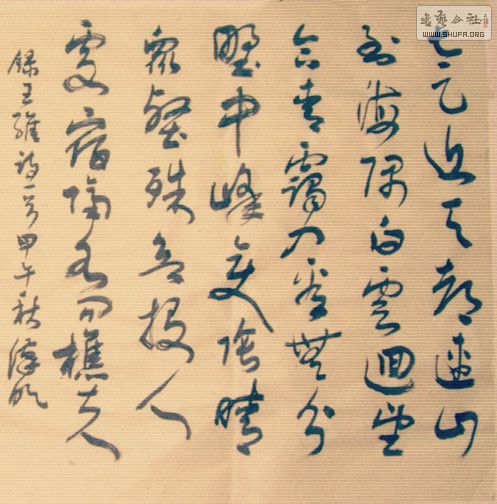 太乙近天都連山
到海隅白雲迴望
合青靄入看無分
野中峰變陰晴
眾壑殊欲投人
處宿隔水問樵夫
錄王維詩一首甲午秋
書藝公社
WWW.SHUFA.ORG